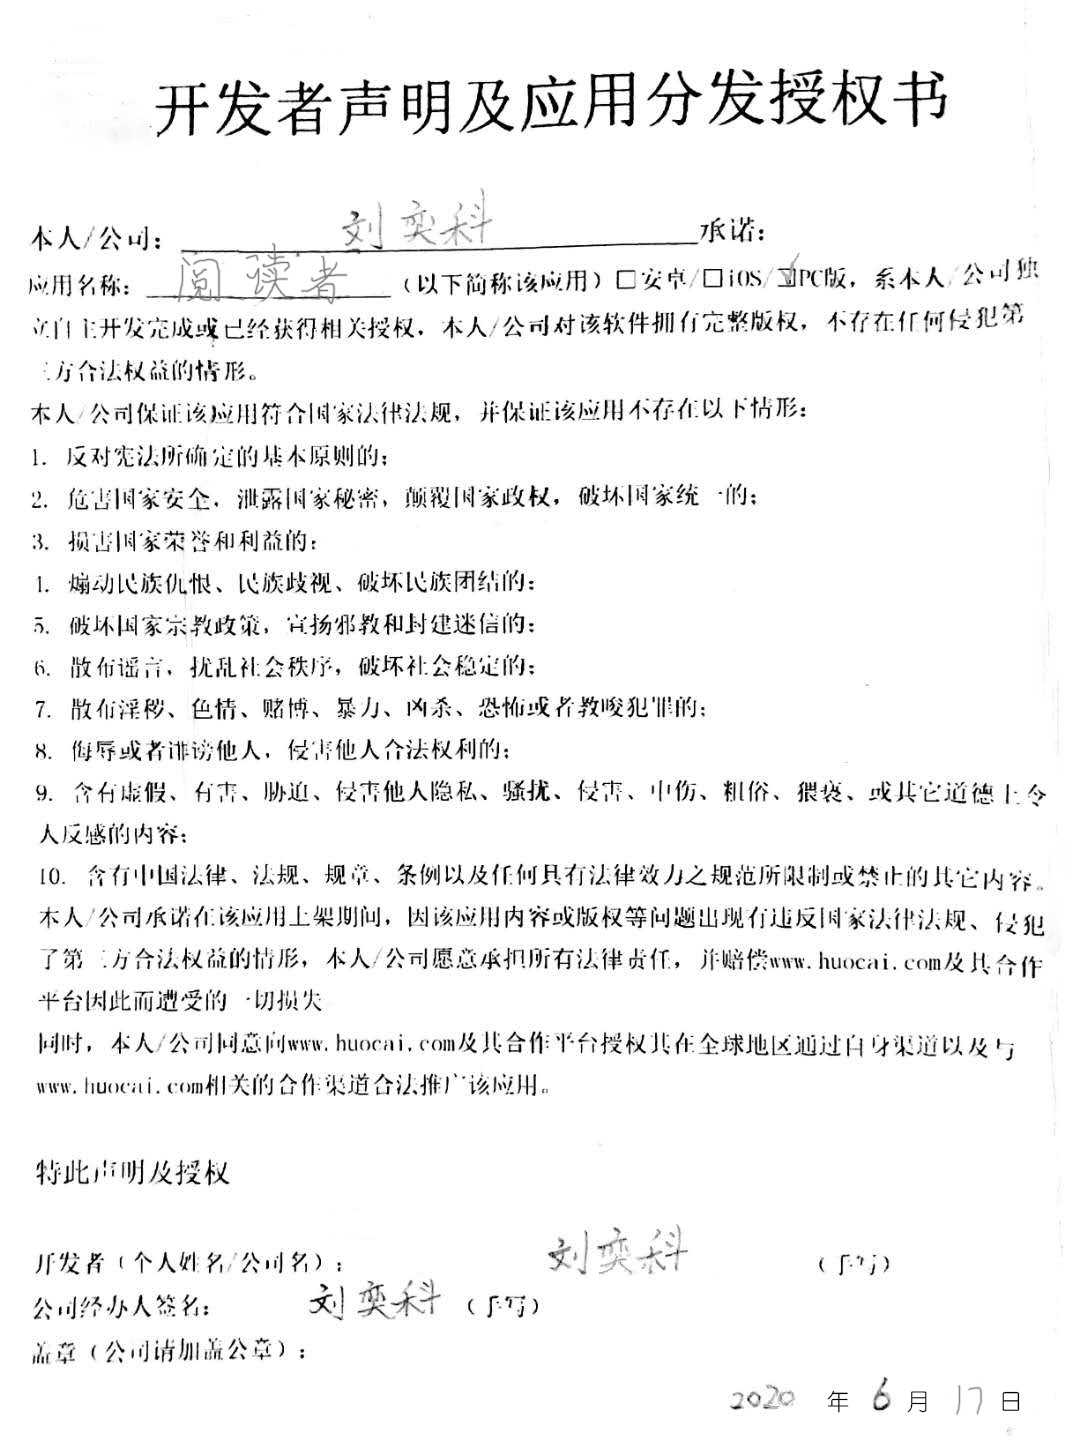 开发者声明及应用分发授权书
本人/公司： 刘奕科 承诺：
应用名称： 阅读者 （以下简称该应用）☐安卓/☐iOS/☑PC版，系本人/公司独
立自主开发完成或已经获得相关授权，本人/公司对该软件拥有完整版权，不存在任何侵犯第
三方合法权益的情形。
本人/公司保证该应用符合国家法律法规，并保证该应用不存在以下情形：
1. 反对宪法所确定的基本原则的；
2. 危害国家安全，泄露国家秘密，颠覆国家政权，破坏国家统一的；
3. 损害国家荣誉和利益的；
4. 煽动民族仇恨、民族歧视、破坏民族团结的；
5. 破坏国家宗教政策，宣扬邪教和封建迷信的；
6. 散布谣言，扰乱社会秩序，破坏社会稳定的；
7. 散布淫秽、色情、赌博、暴力、凶杀、恐怖或者教唆犯罪的；
8. 侮辱或者诽谤他人，侵害他人合法权利的；
9. 含有虚假、有害、胁迫、侵害他人隐私、骚扰、侵害、中伤、粗俗、猥亵、或其它道德上令
人反感的内容；
10. 含有中国法律、法规、规章、条例以及任何具有法律效力之规范所限制或禁止的其它内容。
本人/公司承诺在该应用上架期间，因该应用内容或版权等问题出现有违反国家法律法规、侵犯
了第三方合法权益的情形，本人/公司愿意承担所有法律责任，并赔偿www.huocai.com及其合作
平台因此而遭受的一切损失
同时，本人/公司同意向www.huocai.com及其合作平台授权其在全球地区通过自身渠道以及与
www.huocai.com相关的合作渠道合法推广该应用。
特此声明及授权
开发者（个人姓名/公司名）： 刘奕科 （手写）
公司经办人签名： 刘奕科 （手写）
盖章（公司请加盖公章）：
2020 年 6 月 17 日